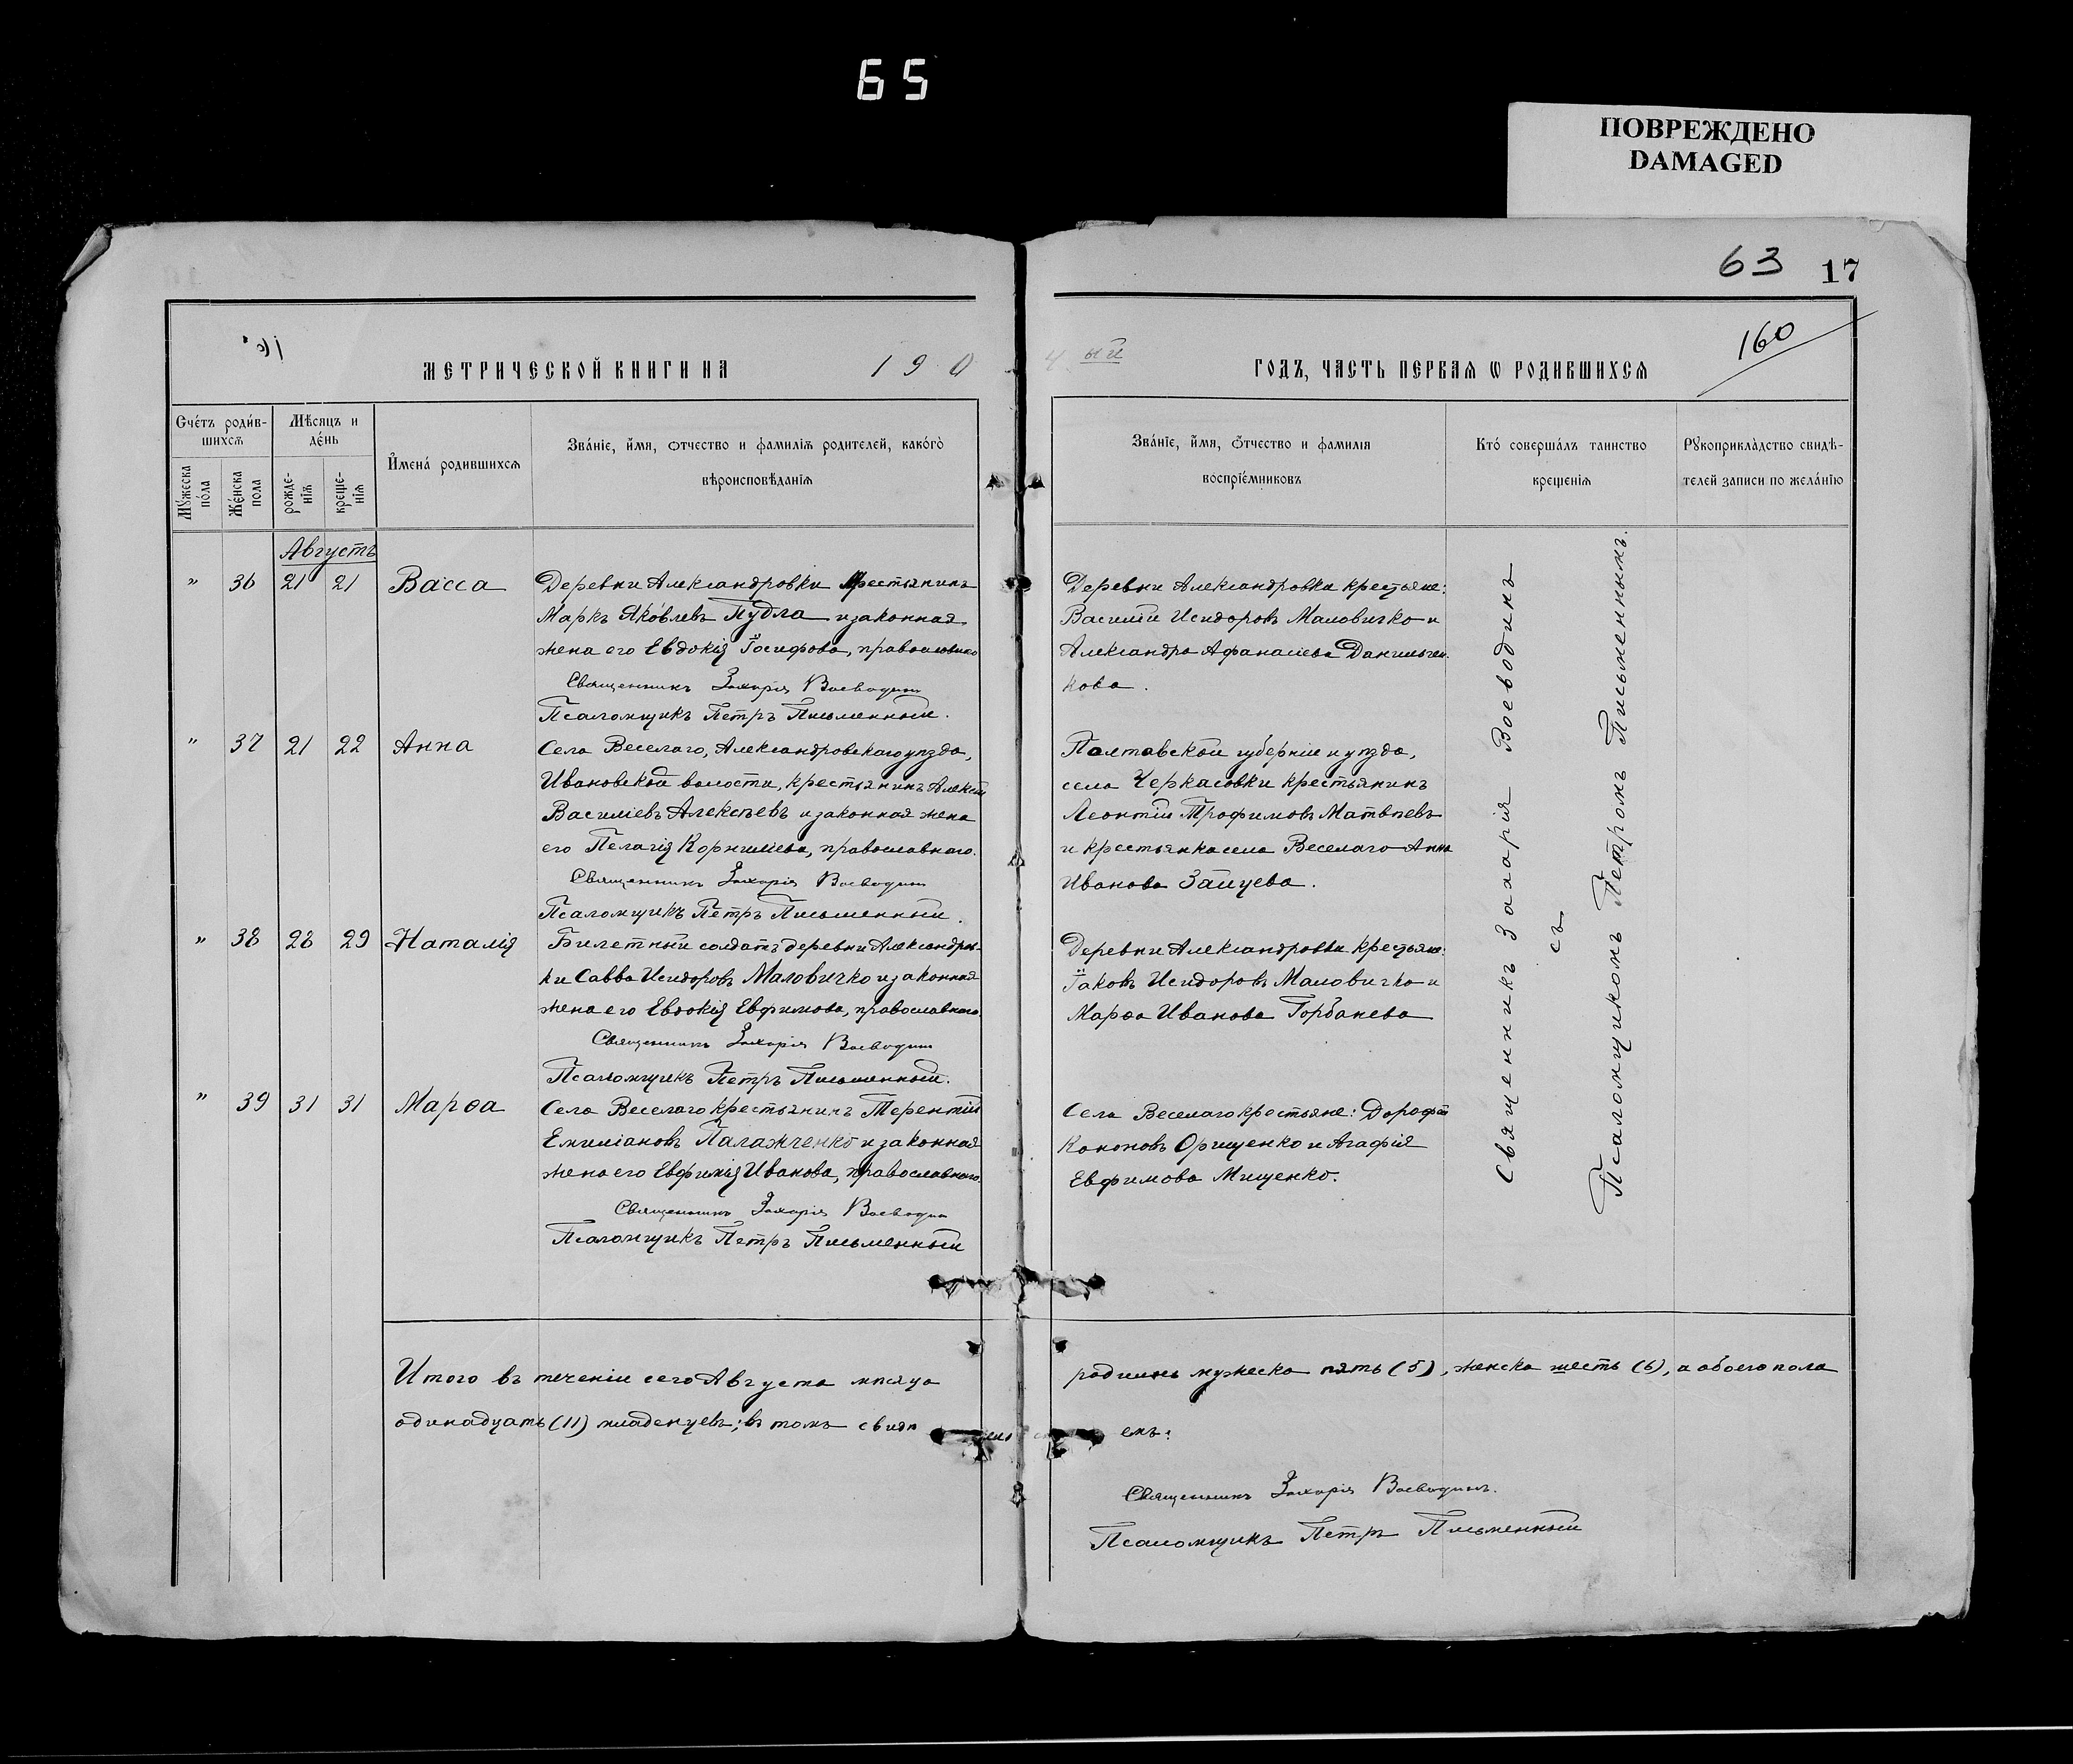 65
ПОВРЕЖДЕНО
DAMAGED
63 17
160
МЕТРИЧЕСКОЙ КНИГИ НА 190
4 ый ГОДЪ, ЧАСТЬ ПЕРВАЯ Ѡ РОДИВШИХСЯ
Счетъ родив-
шихся
Мужеска
пола
Женска
пола
Мѣсяцъ и
день
рожде-
нія
креще-
нія
Имена родившихся
Званіе, имя, отчество и фамилія родителей, какого
вѣроисповѣданія
Званіе, имя, отчество и фамилія
воспріемниковъ
Кто совершалъ таинство
крещенія
Рукоприкладство свидѣ-
телей записи по желанію
Августъ
" 36 21 21 Васса
Деревни Александровки крестьянинъ
Маркъ Яковлевъ Пудла и законная
жена его Евдокія Іосифова, православнаго
Священникъ Захарія Воеводинъ
Псаломщикъ Петръ Письменный.
Деревни Александровки крестьяне:
Василій Исидоровъ Маловичко и
Александра Афанасіева Данильчен-
кова.
" 37 21 22 Анна
Села Веселаго, Александровскаго уѣзда,
Ивановской волости, крестьянинъ Алексѣй
Василіевъ Алексѣевъ и законная жена
его Пелагія Корниліева, православнаго.
Священникъ Захарія Воеводинъ
Псаломщикъ Петръ Письменный.
Полтавской губерніи и уѣзда,
села Черкасовки крестьянинъ
Леонтій Трофимовъ Матвѣевъ
и крестьянка села Веселаго Анна
Иванова Зайцева.
" 38 28 29 Наталія
Билетный солдатъ деревни Александров-
ки Савва Исидоровъ Маловичко и законная
жена его Евдокія Евфимова, православнаго.
Священникъ Захарія Воеводинъ
Псаломщикъ Петръ Письменный.
Деревни Александровки крестьяне:
Іаковъ Исидоровъ Маловичко и
Марѳа Иванова Горбанева
" 39 31 31 Марѳа
Села Веселаго крестьянинъ Терентій
Емиліановъ Палажченко и законная
жена его Евфимія Иванова, православнаго.
Священникъ Захарія Воеводинъ
Псаломщикъ Петръ Письменный
Села Веселаго крестьяне: Дорофей
Кононовъ Орищенко и Агафія
Евфимова Мищенко.
Священникъ Захарія Воеводинъ
съ
Псаломщикомъ Петромъ Письменнымъ.
Итого въ теченіи сего Августа мѣсяца
родилось мужеска пять (5), женска шесть (6), а обоего пола
одинадцать (11) младенцевъ; въ томъ свидѣ
емъ:
Священникъ Захарія Воеводинъ.
Псаломщикъ Петръ Письменный